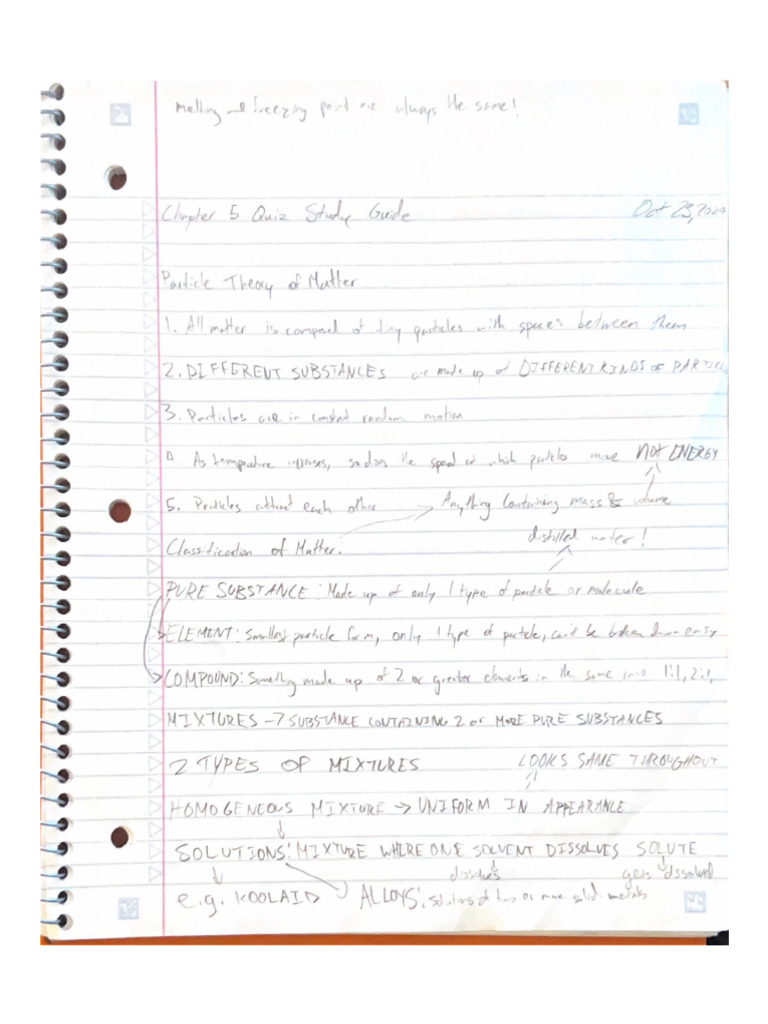 melting and freezing point are always the same!
Chapter 5 Quiz Study Guide Oct 23, 2020
Particle Theory of Matter
1. All matter is compaed of tiny particles with spaces between them
2. DIFFERENT SUBSTANCES are made up of DIFFERENT KINDS OF PARTICL
3. Particles are in constant random motion
4. As temperature increases, so does the speed at which particles move NOT ENERGY
5. Particles attract each other → Anything containing mass & volume
Classification of Matter: distilled water!
PURE SUBSTANCE: Made up of only 1 type of particle or molecule
ELEMENT: Smallest particle form, only 1 type of particle, can't be broken down easy
COMPOUND: Something made up of 2 or greater elements in the same 1:1, 2:1,
MIXTURES → SUBSTANCE CONTAINING 2 OR MORE PURE SUBSTANCES
2 TYPES OF MIXTURES LOOKS SAME THROUGHOUT
HOMOGENEOUS MIXTURE → UNIFORM IN APPEARANCE
SOLUTIONS: MIXTURE WHERE ONE SOLVENT DISSOLVES SOLUTE
dissolves gets dissolved
e.g. KOOLAID ALLOYS: solutions of two or more solid metals